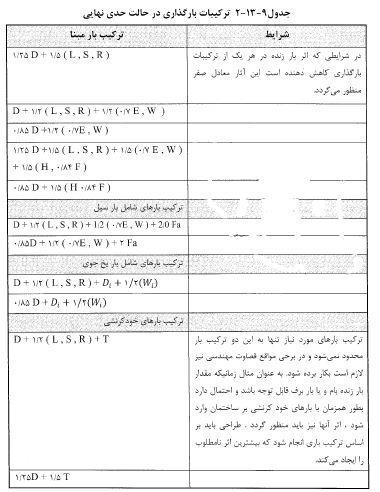 جدول۹-۱۳-۲ ترکیبات بارگذاری در حالت حدی نهایی
ترکیب بار مبنا
شرایط
۱/۲۵ D + ۱/۵ ( L , S , R )
در شرایطی که اثر بار زنده در هر یک از ترکیبات
بارگذاری کاهش دهنده است این آثار معادل صفر
منظور می‌گردد.
D + ۱/۲ ( L , S , R ) + ۱/۲ (۰/۷ E , W )
۰/۸۵ D +۱/۲ (۰/۷E , W )
۱/۲۵ D +۱/۵ ( L , S , R ) + ۱/۵ (۰/۷ E , W )
+ ۱/۵ ( H , ۰/۸۴ F )
۰/۸۵ D + ۱/۵ ( H ۰/۸۴ F )
ترکیب بارهای شامل بار سیل
D + ۱/۲ ( L , S , R ) + 1/2 ( ۰/۷E , W ) + 2/0 Fa
۰/۸۵D + ۱/۲ ( ۰/۷E , W ) + ۲ Fa
ترکیب بارهای شامل بار یخ جوی
D + ۱/۲ ( L , S , R ) + Di + ۱/۲(Wi)
۰/۸۵ D + Di + ۱/۲(Wi)
ترکیب بارهای خودکرنشی
D + ۱/۲ ( L , S , R ) + T
ترکیب بارهای مورد نیاز تنها به این دو ترکیب بار
محدود نمی‌شود و در برخی مواقع قضاوت مهندسی نیز
لازم است بکار برده شود. به عنوان مثال زمانیکه مقدار
بار زنده بام و یا بار برف قابل توجه باشد و احتمال دارد
بطور همزمان با بارهای خود کرنشی بر ساختمان وارد
شود ، اثر آنها نیز باید منظور گردد . طراحی باید بر
اساس ترکیب باری انجام شود که بیشترین اثر نامطلوب
را ایجاد می‌کند.
۱/۲۵D + ۱/۵ T